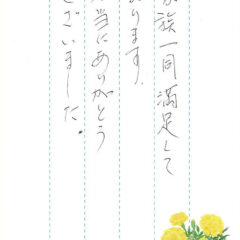 家族一同満足して
おります。
本当にありがとう
ございました。